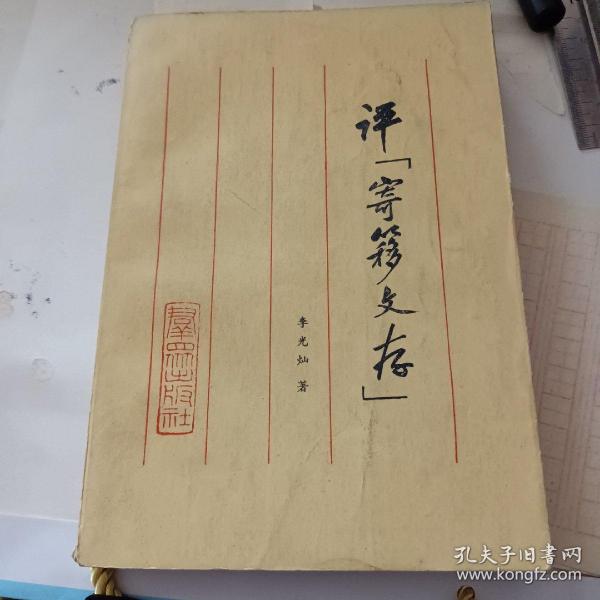 评「寄簃文存」
李光灿 著
羣众出版社
孔夫子旧书网
www.kongfz.com